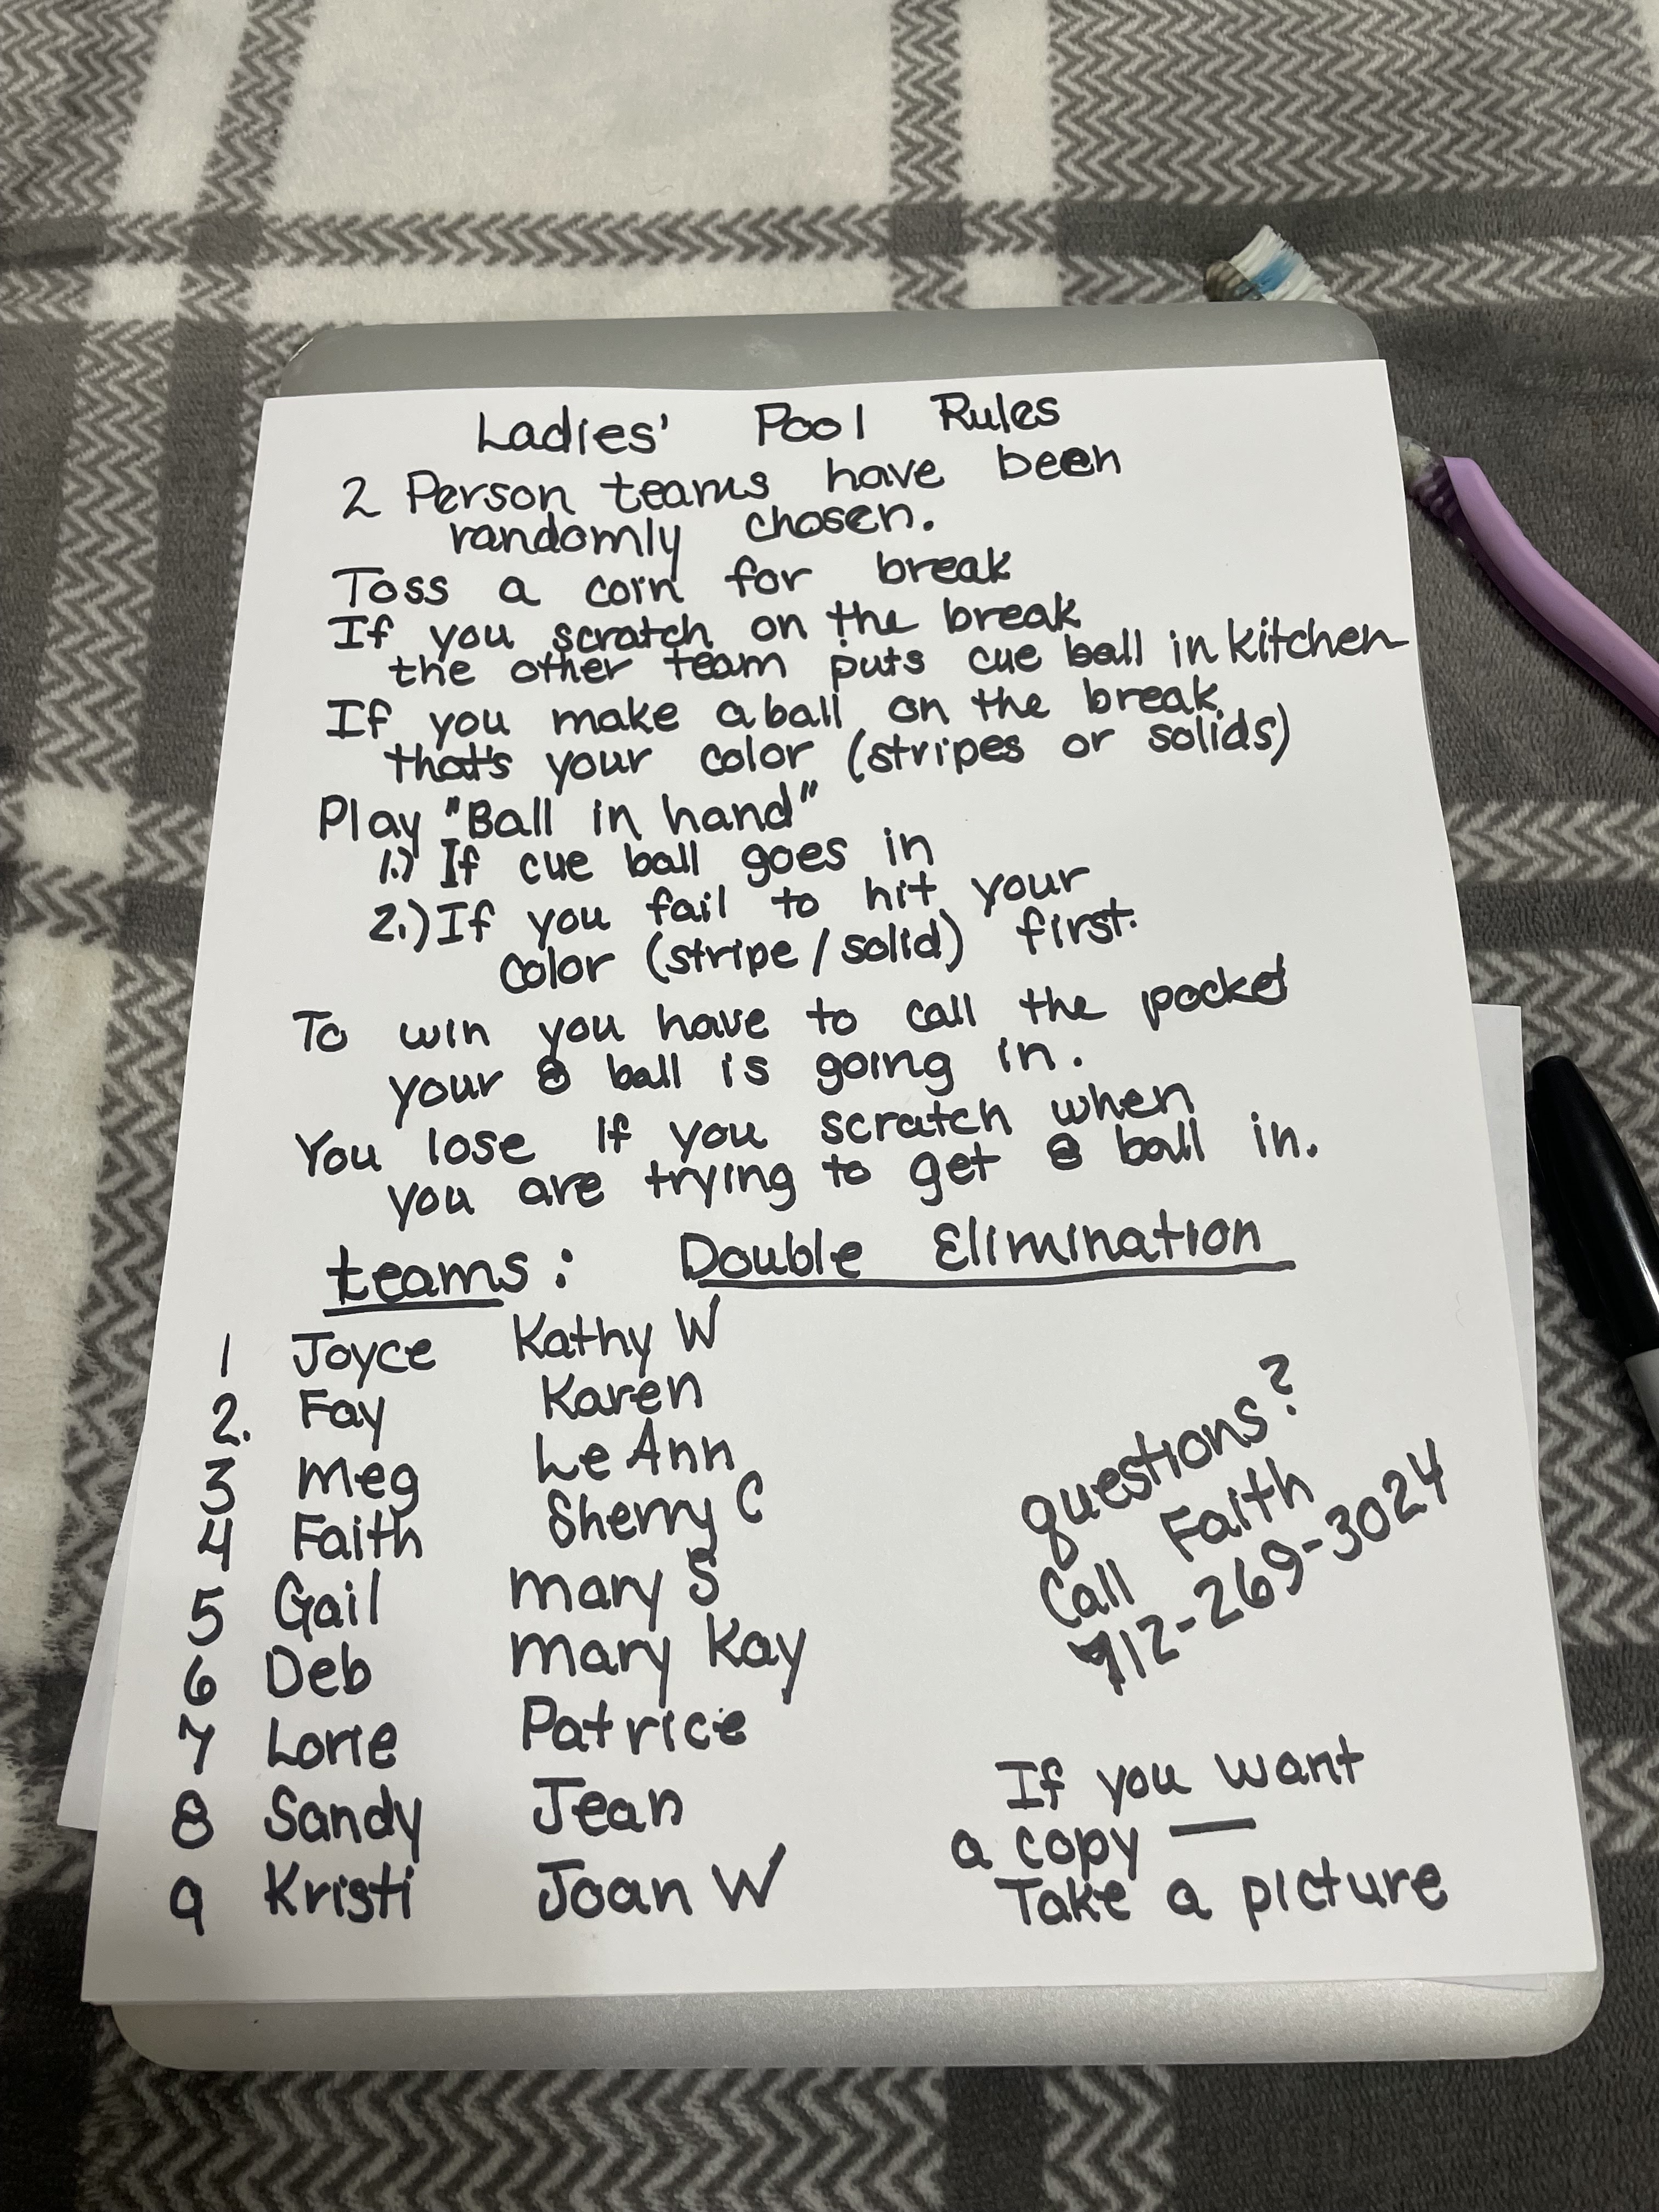 Ladies' Pool Rules
2 Person teams have been
randomly chosen.
Toss a coin for break
If you scratch on the break
the other team puts cue ball in kitchen
If you make a ball on the break
that's your color (stripes or solids)
Play "Ball in hand"
1.) If cue ball goes in
2.) If you fail to hit your
color (stripe/solid) first.
To win you have to call the pocket
your 8 ball is going in.
You lose if you scratch when
you are trying to get 8 ball in.
teams: Double Elimination
1 Joyce Kathy W
2. Fay Karen
3 Meg Le Ann
4 Faith Sherry C
5 Gail Mary S
6 Deb Mary Kay
7 Lorie Patrice
8 Sandy Jean
9 Kristi Joan W
questions?
Call Faith
712-269-3024
If you want
a copy —
Take a picture